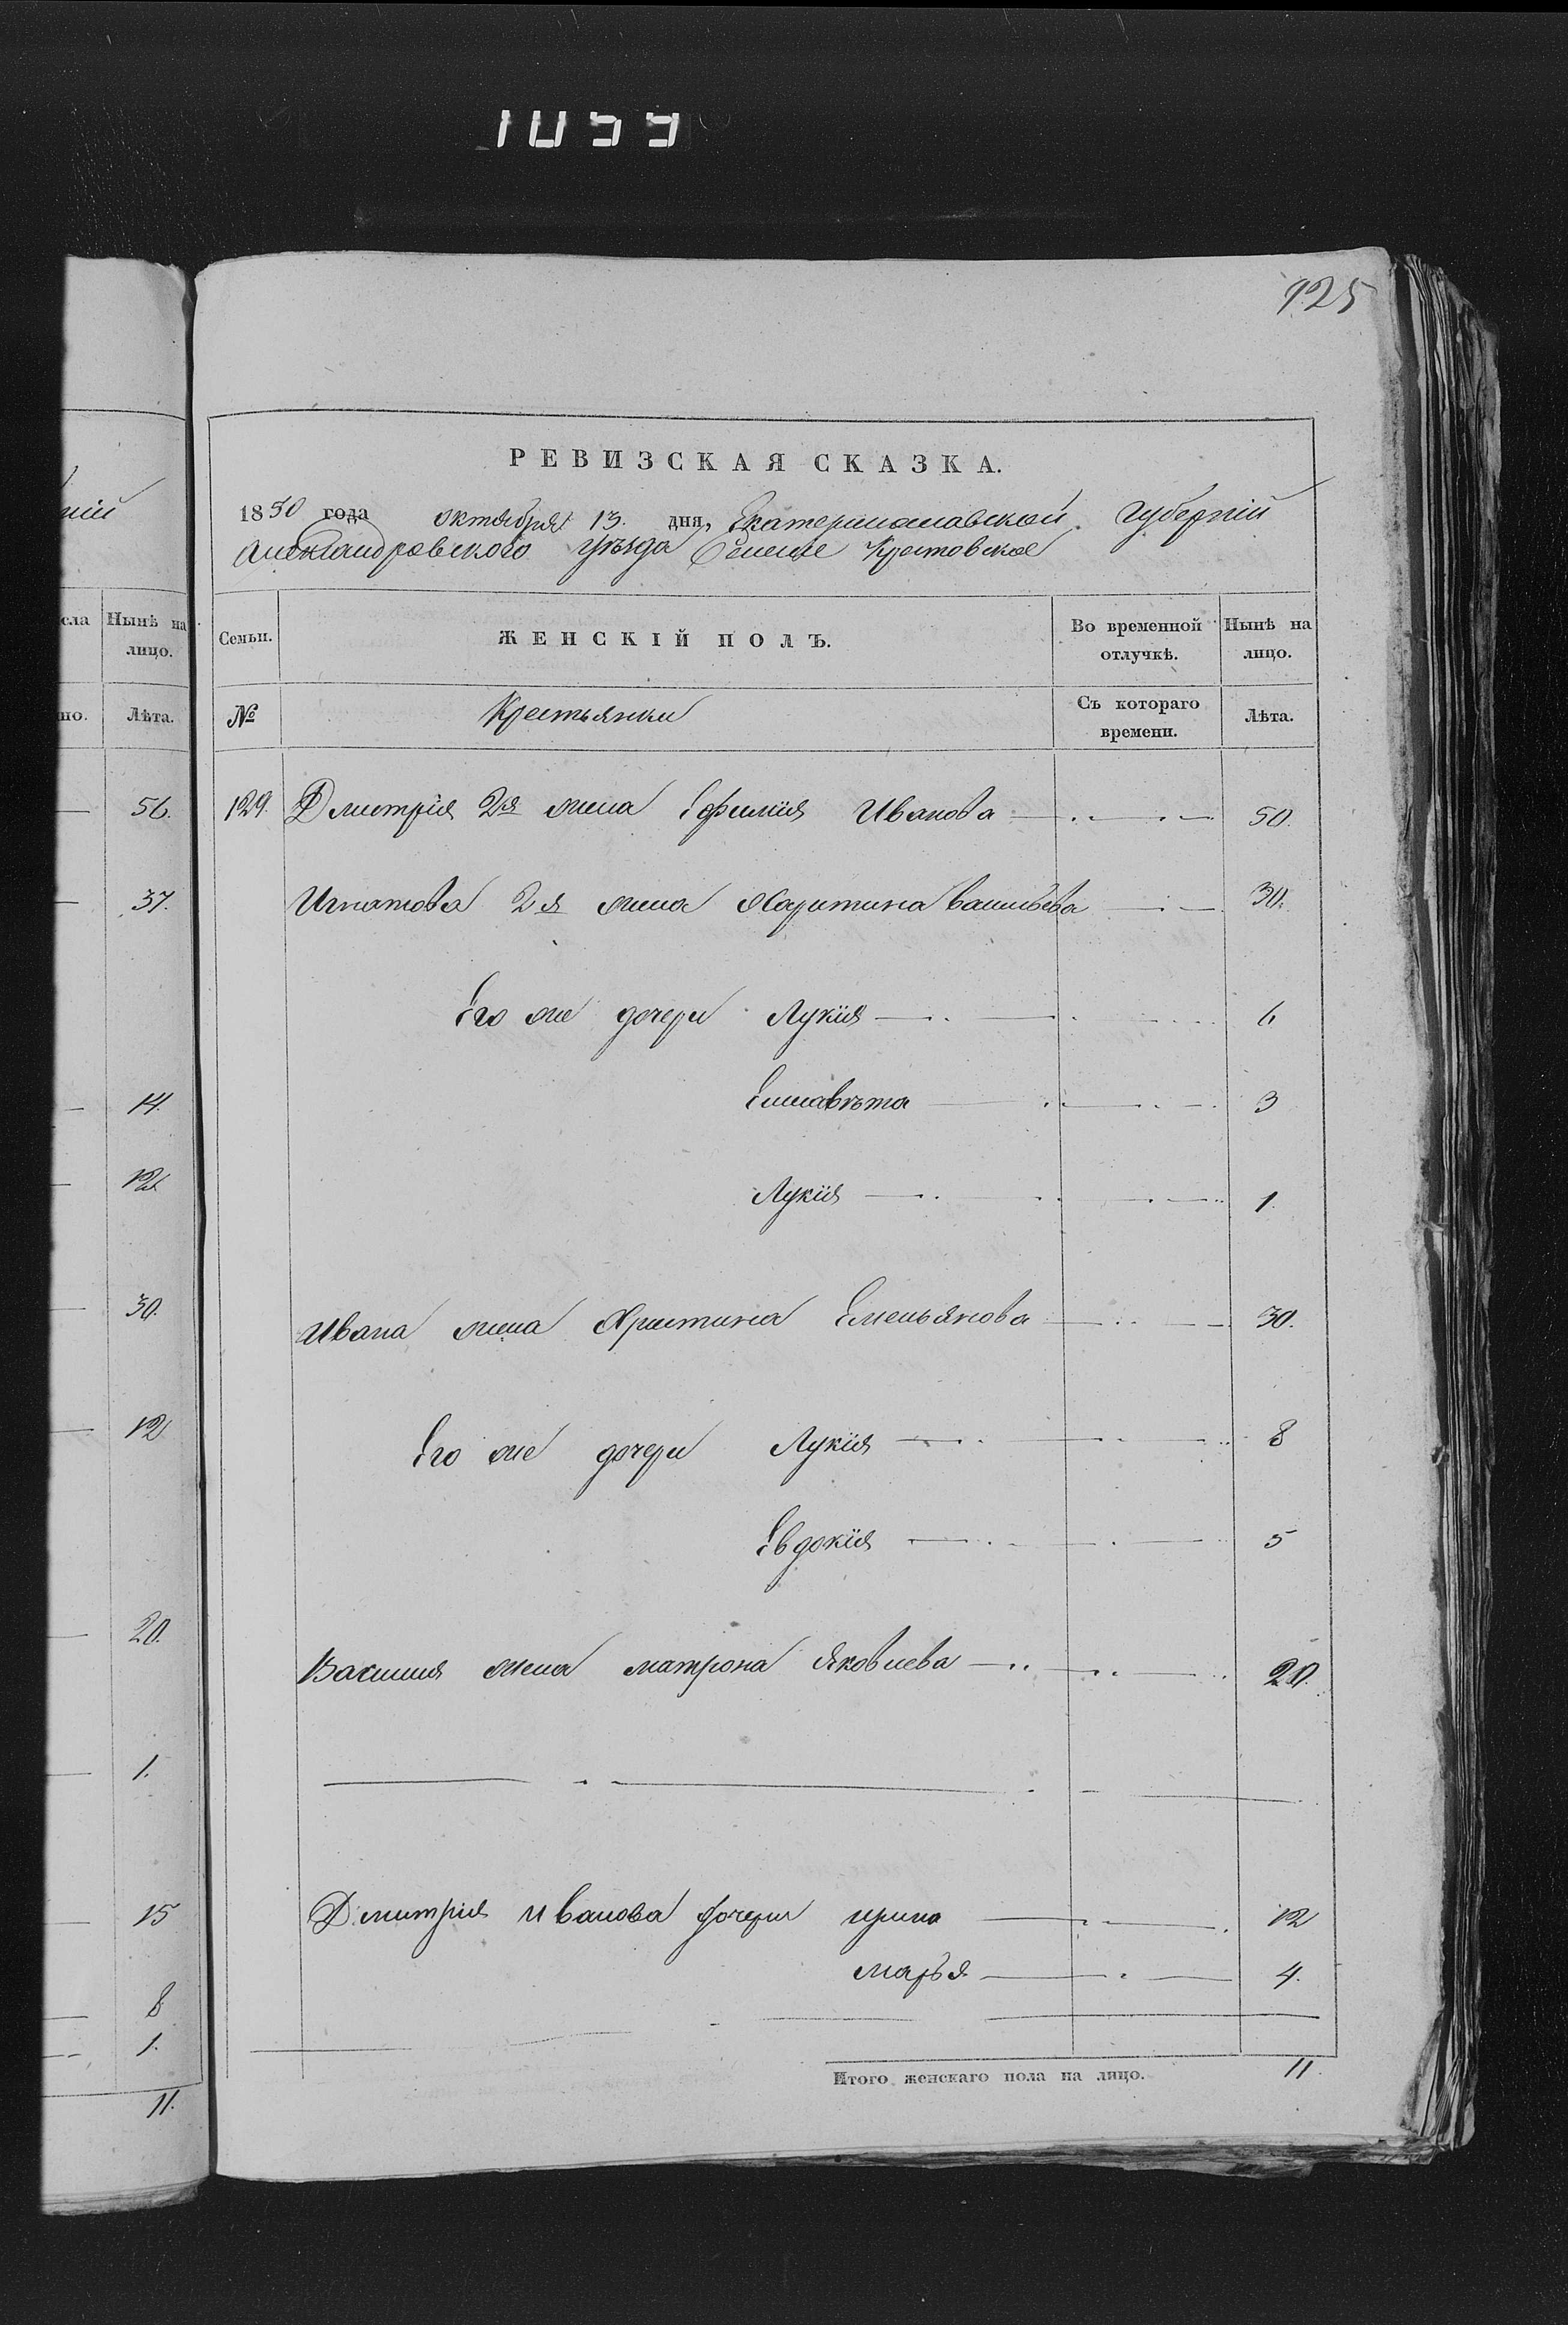 1055
125
РЕВИЗСКАЯ СКАЗКА.
1850 года октября 13. дня, Екатеринославской Губерніи
Александровского уѣзда Селеніе Крестовское
ній
сла Нынѣ на лицо.
но. Лѣта.
56.
37.
14.
12
30.
12
20.
1.
15
8
1.
11.
Семьи. ЖЕНСКІЙ ПОЛЪ. Во временной отлучкѣ. Нынѣ на лицо.
№ Крестьянки Съ котораго времени. Лѣта.
129. Дмитрія 2я жена Ефимія Иванова 50.
Игнатова 2я жена Харитина Васильева 30.
Его же дочери Лукія 6
Елисавѣта 3
Лукія 1.
Ивана жена Христина Емельянова 30.
Его же дочери Лукія 8
Евдокія 5
жена Матрона Яковлева 20.
Дмитрия Иванова дочери Ирина 12
Марья 4.
Итого женскаго пола на лицо. 11.